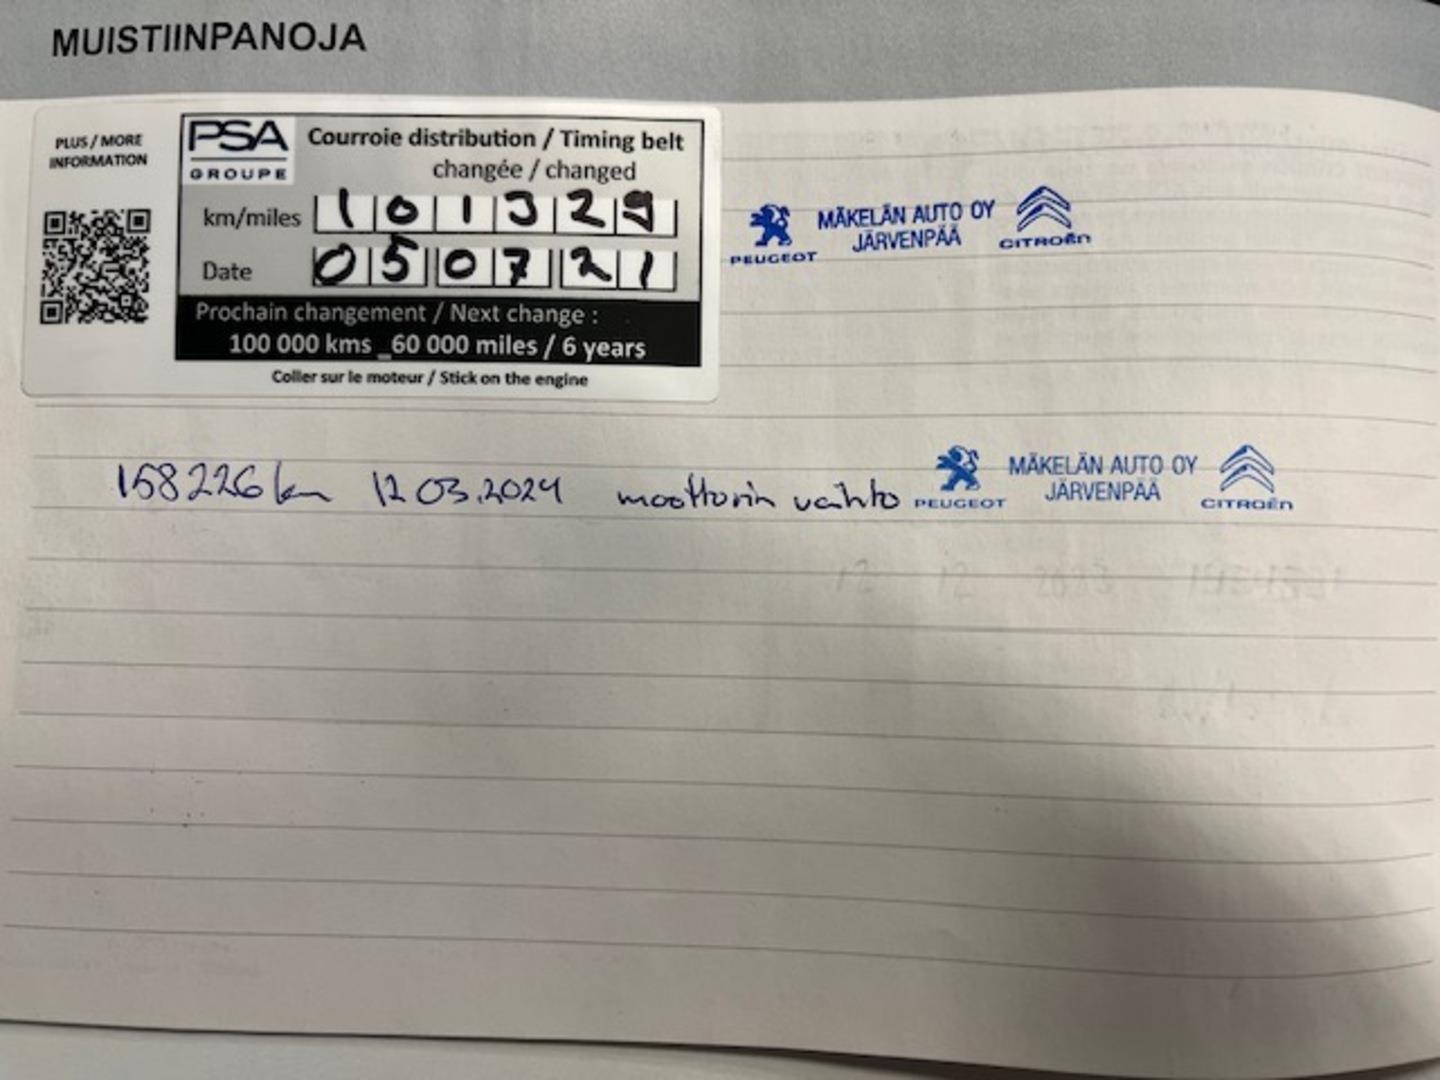 MUISTIINPANOJA
PLUS / MORE
INFORMATION
PSA
GROUPE
Courroie distribution / Timing belt
changée / changed
km/miles 101329
Date 050721
Prochain changement / Next change :
100 000 kms _60 000 miles / 6 years
Coller sur le moteur / Stick on the engine
PEUGEOT
MÄKELÄN AUTO OY
JÄRVENPÄÄ
CITROËN
158226 km 12.03.2024 moottorin vaihto
PEUGEOT
MÄKELÄN AUTO OY
JÄRVENPÄÄ
CITROËN